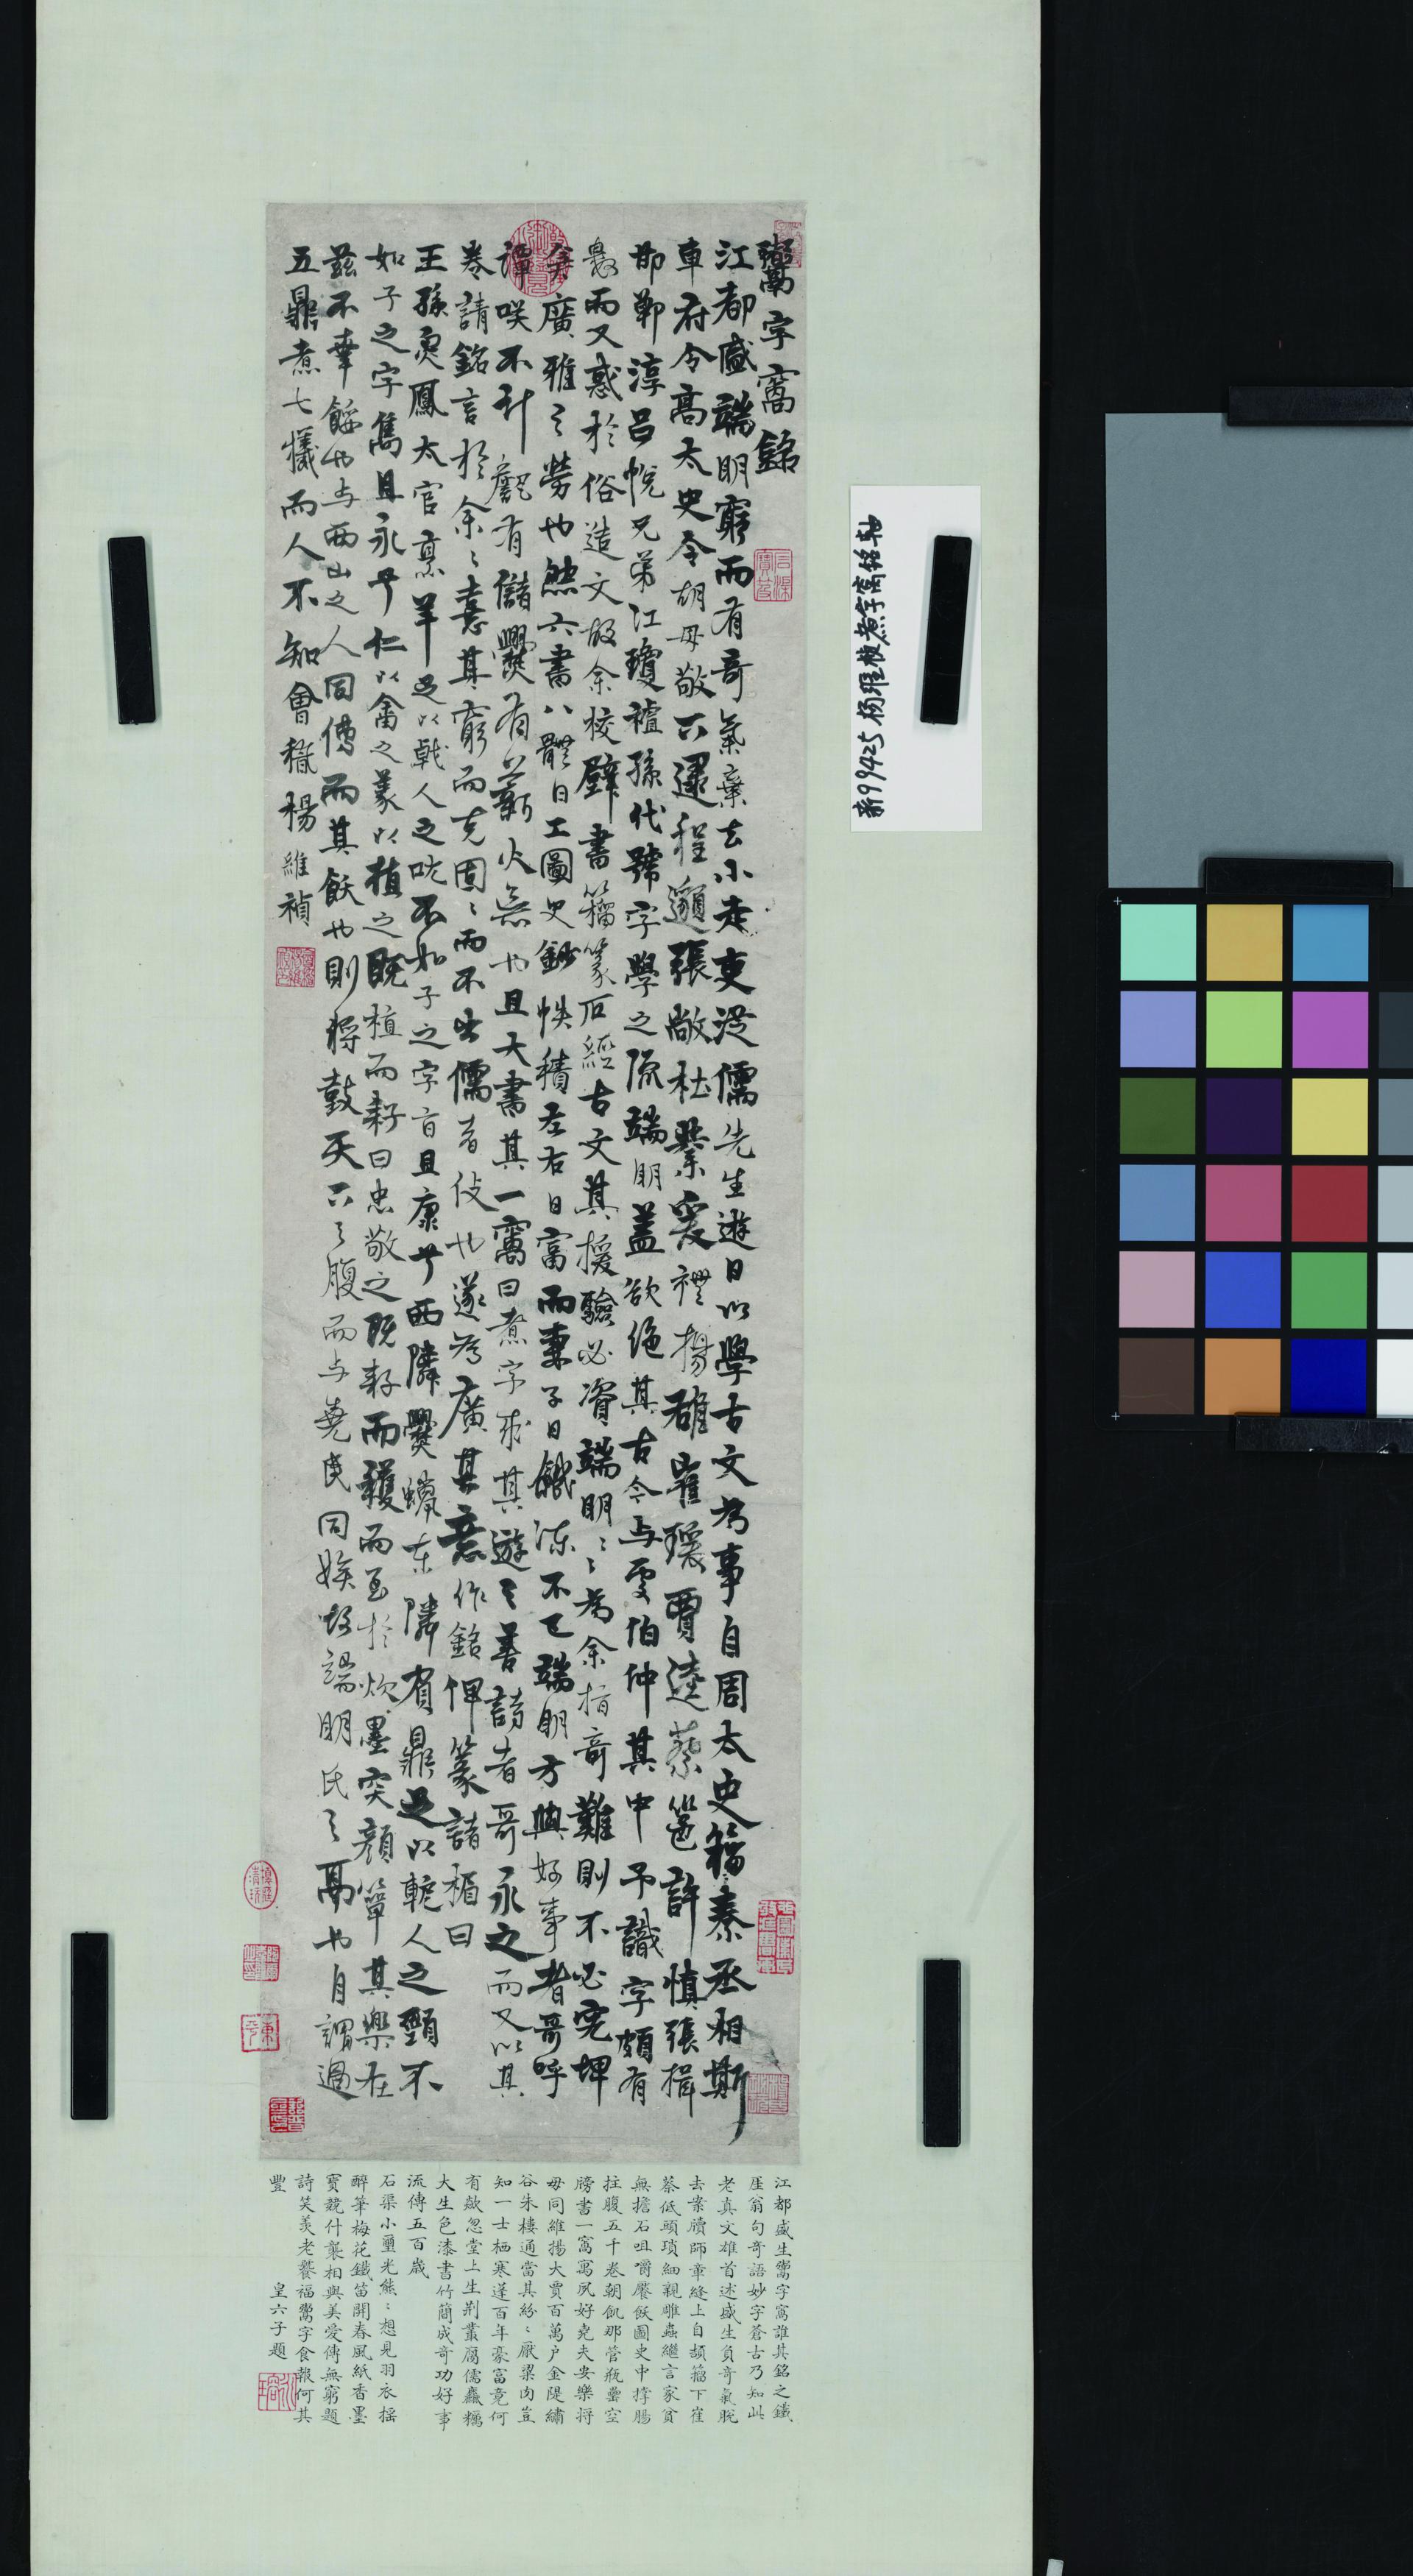 鬻字窩銘
江都盛端明窮而有奇氣棄去小走吏從儒先生遊日以學古文為事自周太史籀秦丞相斯
車府令高太史令胡毋敬下逮程邈張敞杜業爰禮揚雄崔瑗賈逵蔡邕許慎張揖
邯鄲淳呂忱兄弟江瓊禠孫代號字學之流端明蓋欲絕其古今与雯伯仲其中予識字頗有
而又惑於俗造文故余校壁書籀篆石經古文其援驗必資端明〻為余指奇難則不必究埤
廣雅之勞也然六書八體日工圖史鈔帙積左右日富而妻子日饑凍不已端明方與好事者哥呼
譚咲不計甔有儲爨有薪火無也且大書其一窩曰煮字求其遊之善詩者哥永之而又以其
卷請銘言於余〻憙其窮而克固〻而不出儒者伎也遂為廣其意作銘俾篆諸楣曰
王孫炰鳳太官熹羊足以戟人之吭不如子之字旨且康兮西隣爨蠟東隣有鼎足以軶人之頸不
如子之字雋且永兮仁以畬之義以植之既植而耔曰忠敬之既耔而穫而至於炊墨突顏簞其樂在
茲不幸餒也与西山之人同傳而其飫也則將鼓天下之腹而与堯民同娭故端明氏之鬲也自謂過
五鼎煮七犧而人不知會稽楊維禎
新99425 杨维桢煮字窩铭軸
江都盛生鬻字窩誰其銘之鐵
厓翁句奇語妙字蒼古乃知此
老真文雄首述盛生負奇氣脫
去案牘師章縫上自頡籀下崔
蔡低頭瑣細親雕蟲繼言家貧
無擔石咀嚼饜飫圖史中撐腸
拄腹五千卷朝飢那管瓶罍空
牓書一窩寓夙好堯夫安樂將
毋同維揚大賈百萬户金隄繡
谷朱樓通當其紛〻厭粱肉豈
知一士栖寒蓬百年豪富竟何
有歘忽堂上生荆叢腐儒麤糲
大生色漆書竹簡成奇功好事
流傳五百歲
石渠小璽光熊〻想見羽衣搖
醉筆梅花鐵笛開春風紙香墨
寶競什襲相與美愛傳無窮題
詩笑羡老饕福鬻字食報何其
豐
皇六子題